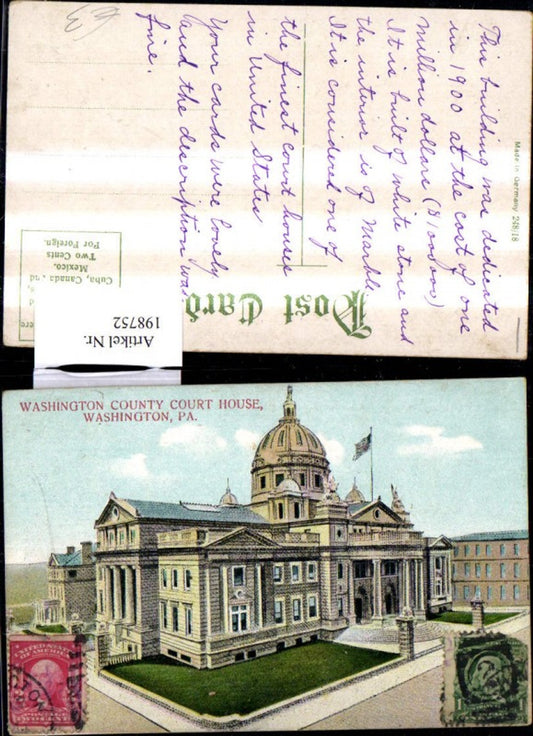 This building was dedicated
in 1900 at the cost of one
million dollars ($1000000)
It is built of white stone and
the interior is of marble
It is considered one of
the finest court houses
in United States
Your cards were lovely
and the description was
fine.
Made in Germany 248/18
Post Card.
Cuba, Canada and
Mexico.
Two Cents
For Foreign.
Artikel Nr.
198752
WASHINGTON COUNTY COURT HOUSE,
WASHINGTON, PA.
UNITED STATES
OF AMERICA
POSTAGE
1
1